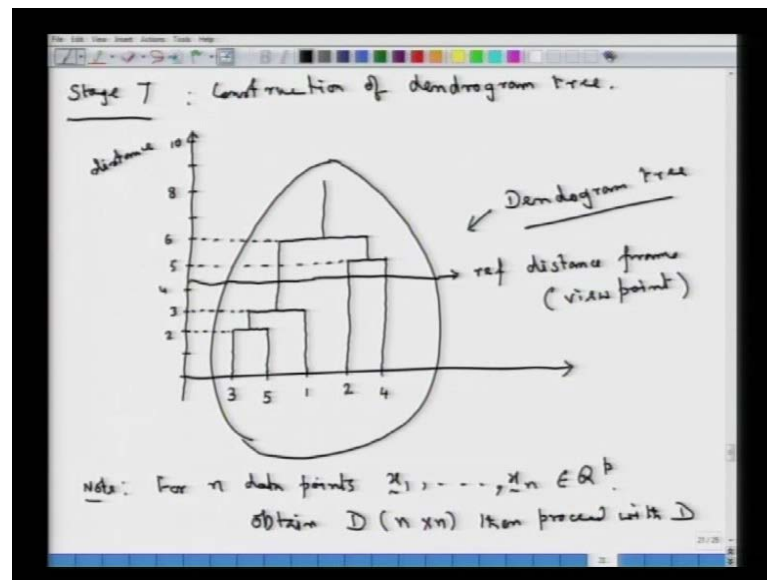 File Edit View Insert Actions Tools Help
Stage 7 : Construction of dendrogram tree.
distance
10
8
6
5
4
3
2
3 5 1 2 4
Dendogram tree
ref distance frame
(view point)
Note: For n data points x1, ----, xn ∈ R^p.
obtain D (n x n) then proceed with D
21/25
22